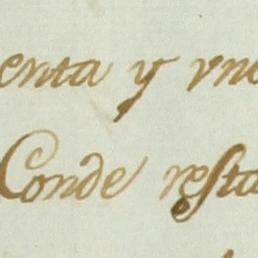 enta y vno
Conde resta